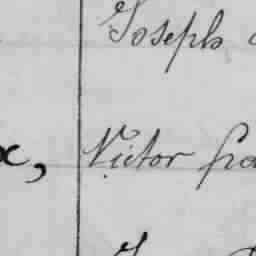 Joseph
x, Victor fra